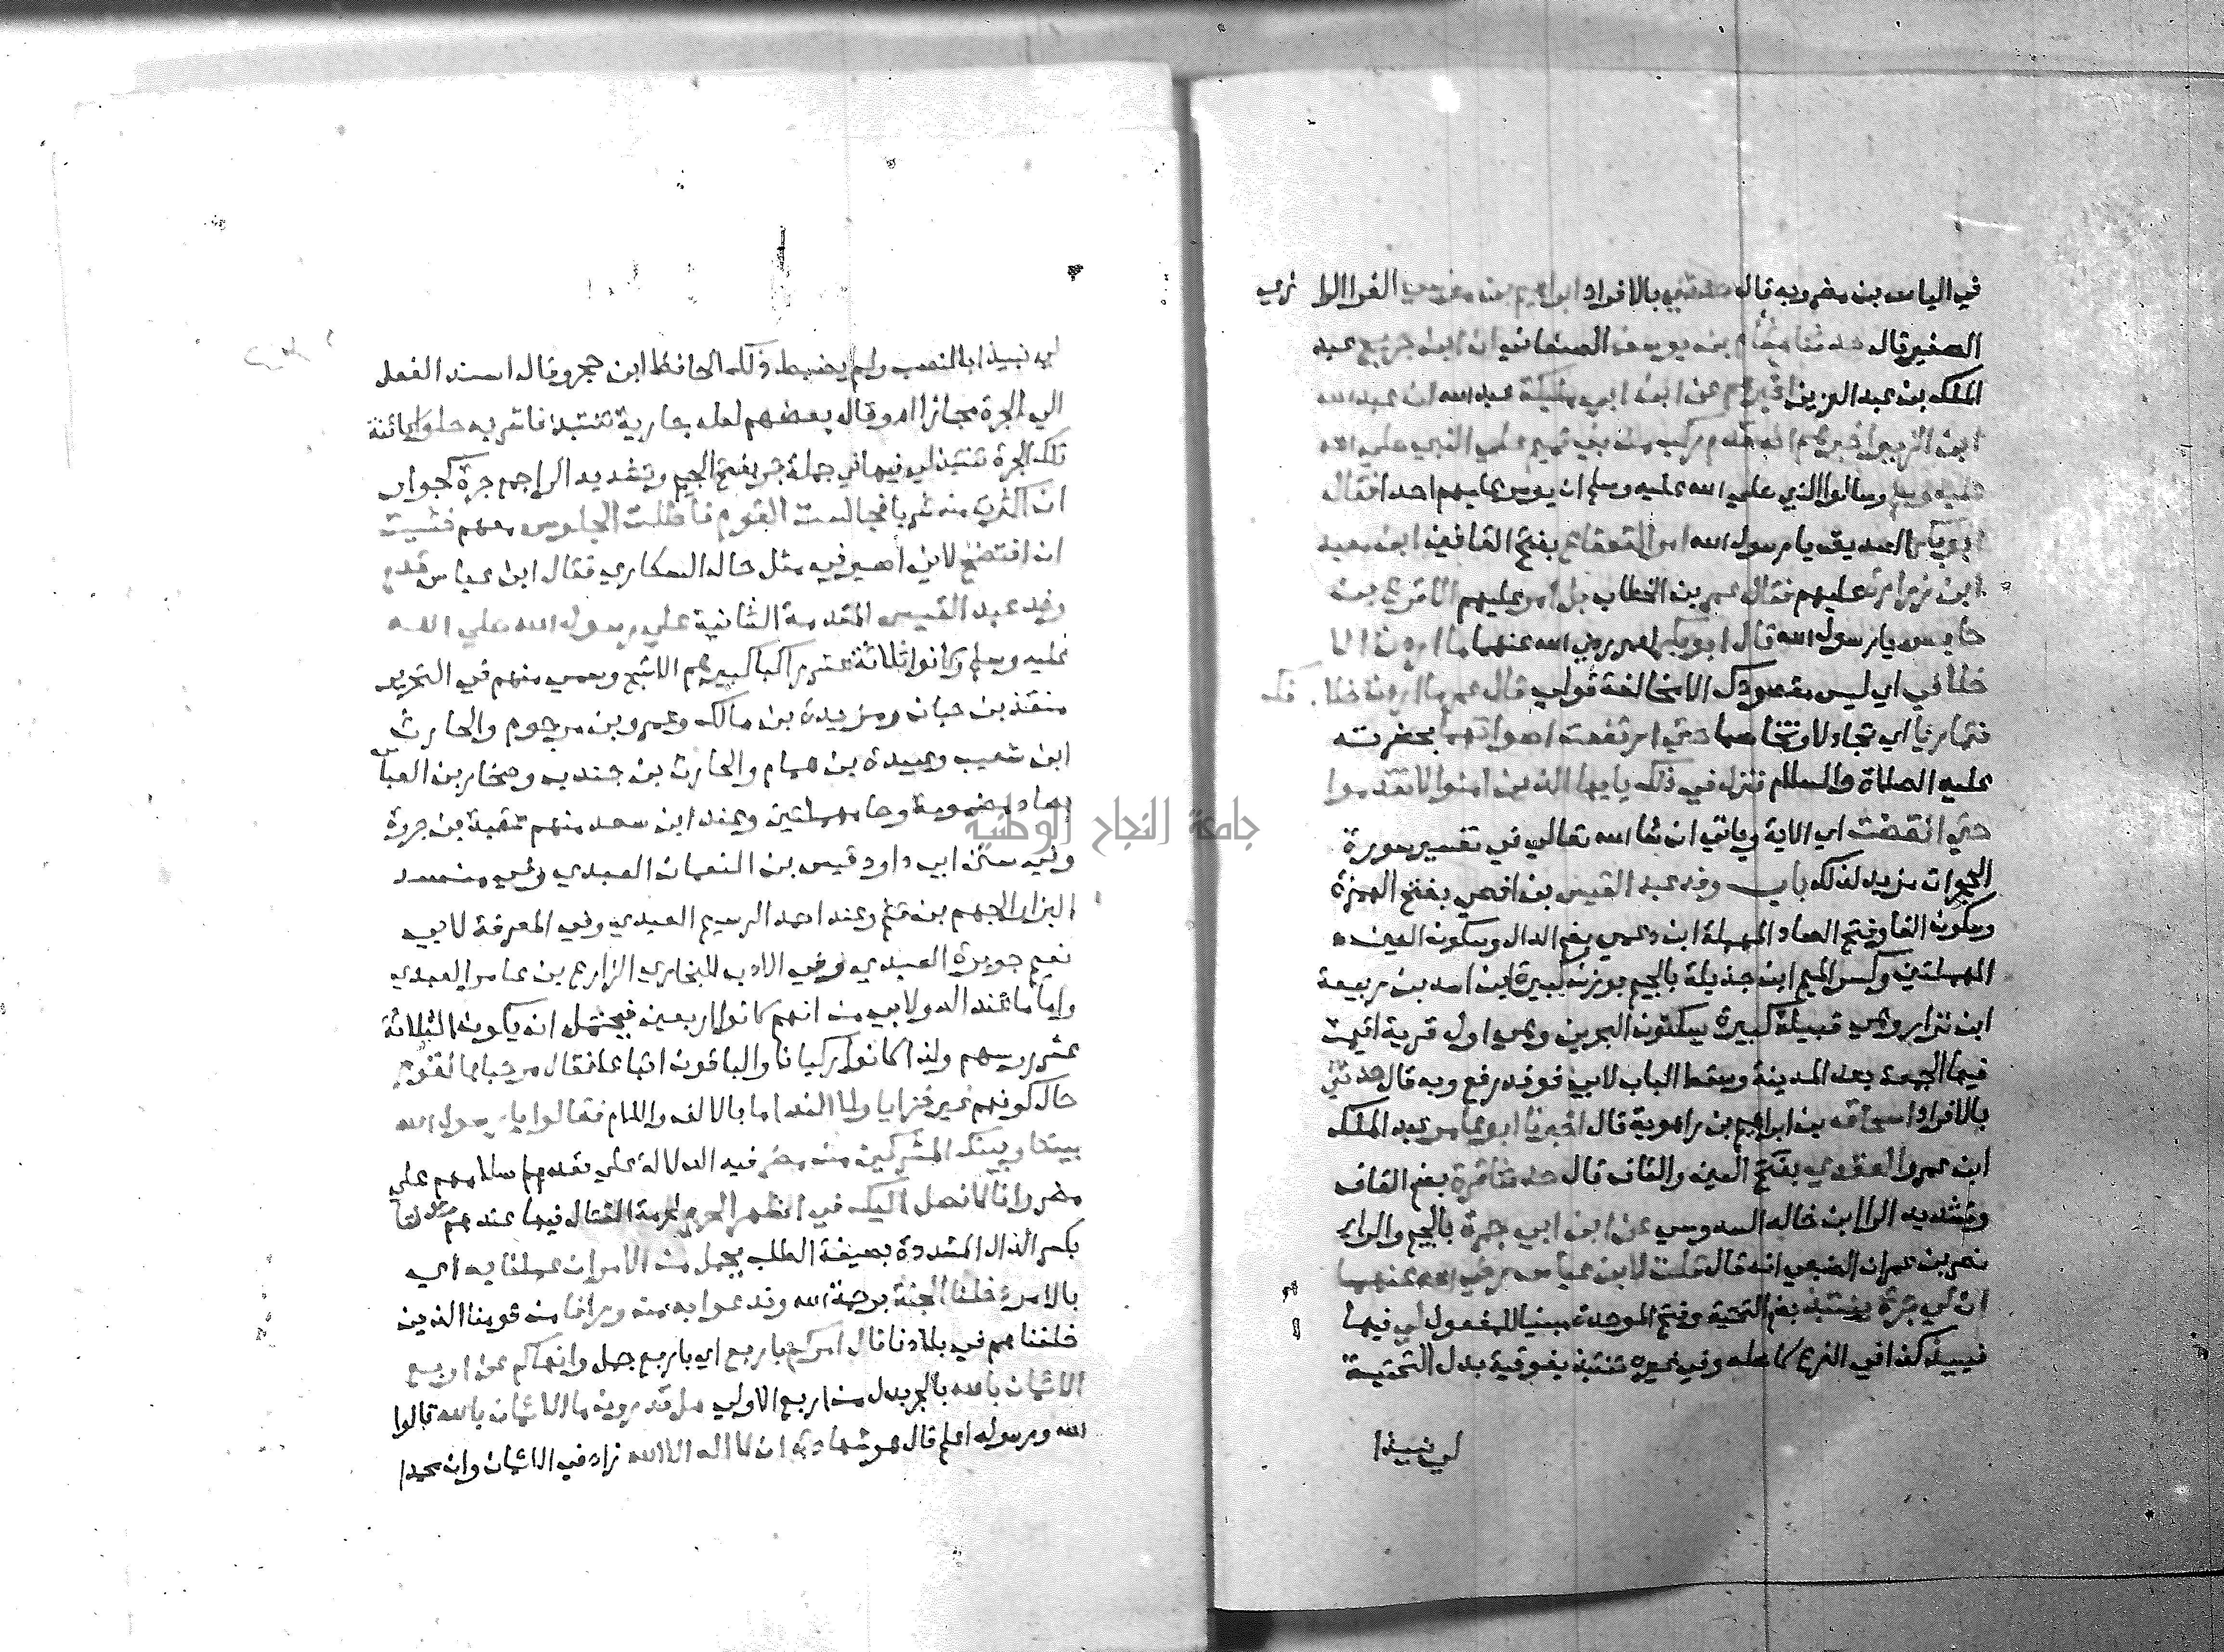 في الياس بن مضر وبه قال حدثني بالافراد ابراهيم بن موسى الفرا الرا زي
الصغير قال حدثنا هشام بن يوسف الصنعاني ان ابن جريج عبد
الملك بن عبد العزيز اخبرهم عن ابن ابي مليكة عبد الله ان عبد الله
ابن الزبير اخبرهم انه قدم ركب من بني تميم على النبي صلى الله
عليه وسلم وسالوا النبي صلى الله عليه وسلم ان يومر عليهم احدا فقال
ابو بكر الصديق يا رسول الله امر القعقاع بفتح القافين ابن معبد
ابن زرارة عليهم فقال عمر بن الخطاب بل امر عليهم الاقرع بن
حابس يا رسول الله قال ابو بكر لعمر رضي الله عنهما ما اردت الا
خلافي اي ليس مقصودك الا مخالفة قولي قال عمر ما اردت خلا فك
فتماريا اي تجادلا وتخاصما حتى ارتفعت اصواتهما بحضرته
عليه الصلاة والسلام فنزل في ذلك يايها الذين امنوا لا تقدموا
حتى انقضت اي الاية وياتي ان شا الله تعالى في تفسير سورة
الحجرات مزيد لذلك باب وفد عبد القيس بن افصى بفتح الهمزة
وسكون الفا وفتح الصاد المهملة ابن دعمي بضم الدال وسكون العين
المهملتين وكسر الميم ابن جديلة بالجيم بوزن كبيرة ابن اسد بن ربيعة
ابن نزار وهي قبيلة كبيرة يسكنون البحرين وهي اول قرية اقيمت
فيها الجمعة بعد المدينة وسقط الباب لابي ذر فوفد رفع وبه قال حدثني
بالافراد اسحاق بن ابراهيم بن راهوية قال اخبرنا ابو عامر عبد الملك
ابن عمرو العقدي بفتح العين والقاف قال حدثنا قرة بضم القاف
وتشديد الرا ابن خالد السدوسي عن ابن ابي جمرة بالجيم والراء
نصر بن عمران الضبعي انه قال قلت لابن عباس رضي الله عنهما
ان لي جرة ينتبذ بضم التحتية وفتح الموحدة مبنيا للمفعول لي فيها
نبيذ كذا في الفرع كاصله وفي غيره تنتبذ بفوقية بدل التحتية
لي نبيذا
لي نبيذا بالنصب ولم يضبط ذلك الحافظ ابن حجر وقال اسند الفعل
الى الجرة مجازا اه وقال بعضهم لعله جارية تنتبذ فاشربه حلوا كائنة
تلك الجرة تنتبذ لي فيها في جملة جر بفتح الجيم وتشديد الرا جمع جرة كجرار
ان اكثرت منه شربا فجالست القوم فاطلت الجلوس معهم خشيت
ان افتضح لاني اصير في مثل حال السكارى فقال ابن عباس قدم
وفد عبد القيس المقدمة الثانية على رسول الله صلى الله
عليه وسلم وكانوا ثلاثة عشر راكبا كبيرهم الاشج وسمي منهم في التحرير
منقذ بن حبان ومزيدة بن مالك وعمرو بن مرجوم والحارث
ابن شعيب وعبيدة بن همام والحارث بن جندب وصحار بن العباس
بصاد مضمومة وحا مهملتين وعند ابن سعد منهم عقبة بن جروة
وفي سنن ابي داود قيس بن النعمان العبدي وفي مسند
البزار الجهم بن قثم وعند احمد الرسيم العبدي وفي المعرفة لابي
نعيم جويرة العبدي وفي الادب للبخاري الزارع بن عامر العبدي
واما ما عند الدولابي من انهم كانوا اربعين فيحتمل ان يكون الثلاثة
عشر روسهم ولذا كانوا ركبانا والباقون اتباعا فقال مرحبا بالقوم
حال كونهم غير خزايا ولا الندامى بالالف واللام فقالوا يا رسول الله
بيننا وبينك المشركين من مضر فيه الدلالة على تقدم اسلامهم على
مضر وانا لا نصل اليك في اشهر الحرم لحرمة القتال فيها عندهم حدثنا
بكسر الدال المشددة بصيغة الطلب بجمل من الامر ان عملنا به اي
بالامر دخلنا الجنة برحمة الله وندعوا به من وراءنا من قومنا الذين
خلفناهم في بلادنا قال امركم باربع اي باربع جمل وانهاكم عن اربع
الايمان بالله بالجر بدل من اربع الاولى هل تدرون ما الايمان بالله قالوا
الله ورسوله اعلم قال هو شهادة ان لا اله الا الله زاد في الايمان وان محمدا
جامعة النجاح الوطنية